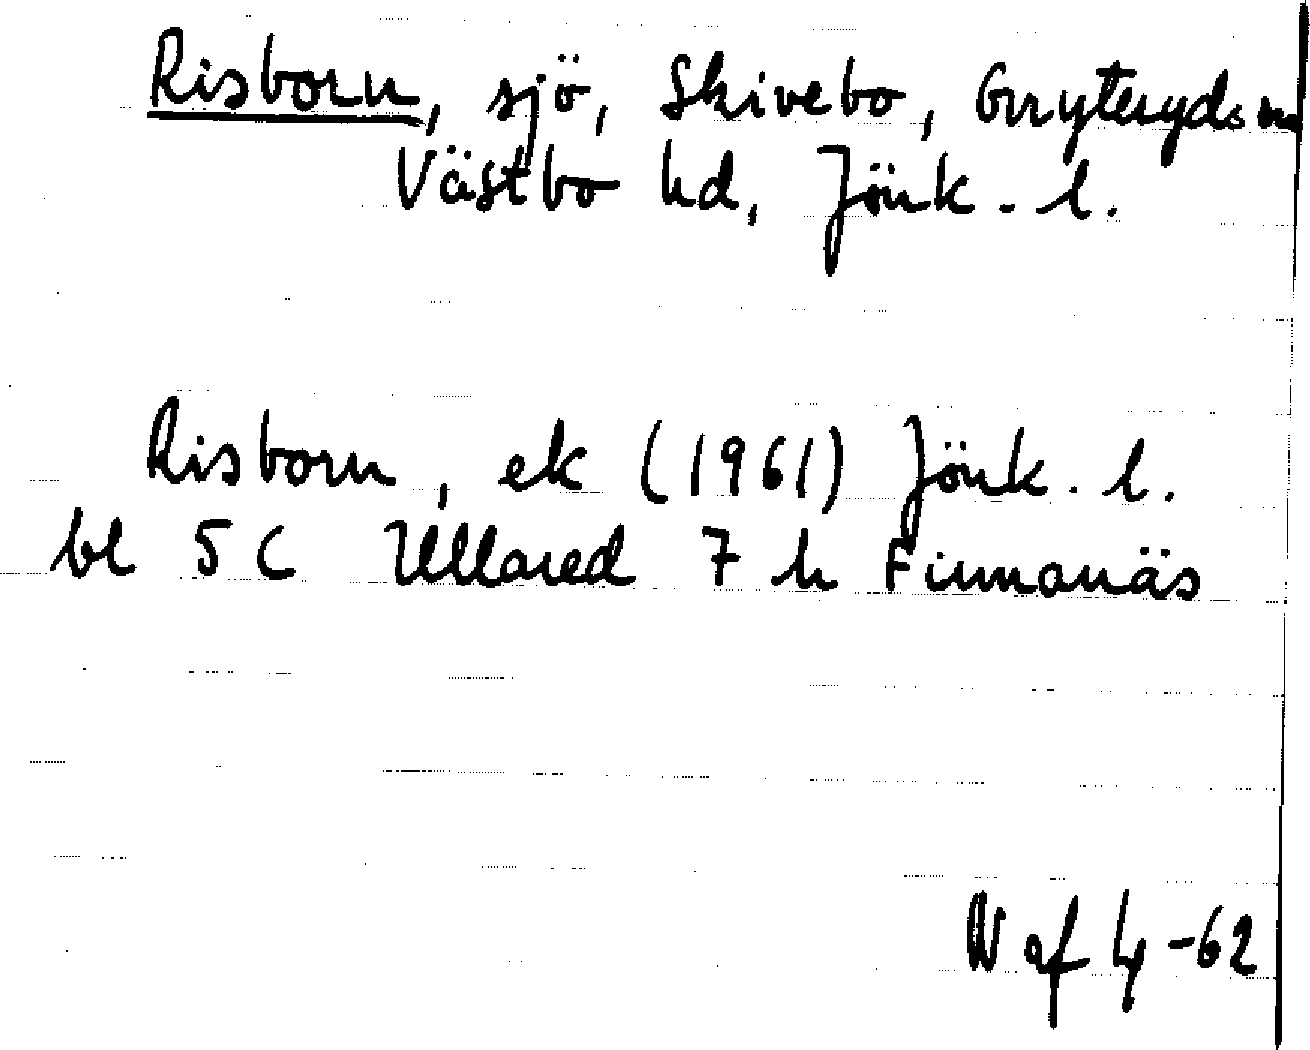 Risborn, sjö, Skivebo, Gryteryds sn
Västbo hd, Jönk. l.
Risborn, ek (1961) Jönk. l.
bl 5 C Ullared 7 h Finnanäs
W af Ly -62